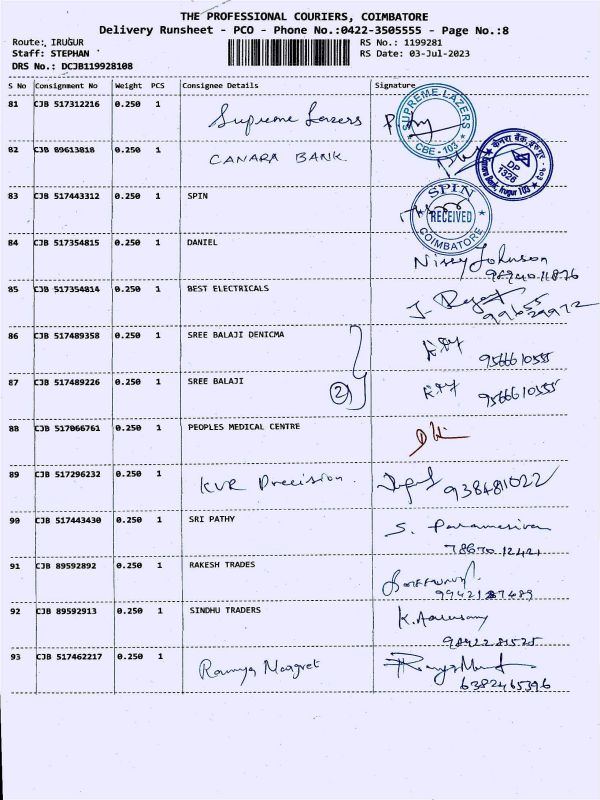 THE PROFESSIONAL COURIERS, COIMBATORE
Delivery Runsheet - PCO - Phone No.:0422-3505555 - Page No.:8
Route: IRUGUR RS No.: 1199281
Staff: STEPHAN RS Date: 03-Jul-2023
DRS No.: DCJB119928108
S No Consignment No Weight PCS Consignee Details Signature
81 CJB 517312216 0.250 1 Supreme Lazers SUPREME LAZERS CBE - 103
82 CJB 89613818 0.250 1 CANARA BANK DP 1328
83 CJB 517443312 0.250 1 SPIN SPIN RECEIVED COIMBATORE
84 CJB 517354815 0.250 1 DANIEL Nissy Johnson
85 CJB 517354814 0.250 1 BEST ELECTRICALS
86 CJB 517489358 0.250 1 SREE BALAJI DENICMA
9566610555
87 CJB 517489226 0.250 1 SREE BALAJI 2
9566610555
88 CJB 517066761 0.250 1 PEOPLES MEDICAL CENTRE
89 CJB 517296232 0.250 1 KVR Precision 9384811022
90 CJB 517443430 0.250 1 SRI PATHY S.
91 CJB 89592892 0.250 1 RAKESH TRADES
92 CJB 89592913 0.250 1 SINDHU TRADERS K.
93 CJB 517462217 0.250 1 Ramya Margret
6382465396